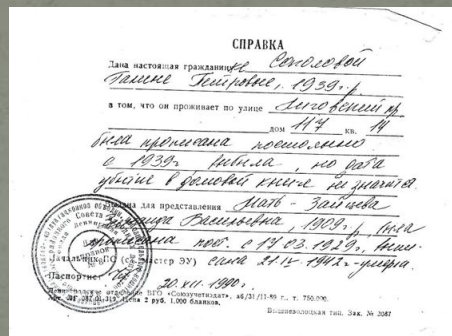 СПРАВКА
Дана настоящая гражданинке Соколовой
Галине Петровне, 1939 г. р
в том, что он проживает по улице Лиговский пр
дом 117 кв. 14
была прописана постоянно
с 1939г выбыла, но дата
убытие в домовой книге не значится.
для представления Мать - Зайцева
Васильевна, 1909 г. р, была
прописана пост. с 17.03.1929,
Начальник (ст. мастер ЭУ) сана 21.IV-1942 - умерла
Паспортист
20.XII-1990г.
отделение ВГО «Союзучетиздат», 1989 г., т. 750.000.
Цена 2 руб. 1.000 бланков.
Вышневолоцкая тип. Зак. № 2087